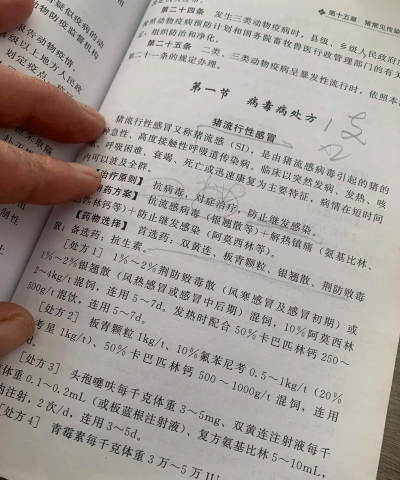 第十五章 猪常见传染
第二十四条 发生三类动物疫病时，县级、乡级人民政府
动物疫病预防计划和国务院畜牧兽医行政管理部门的有关
组织防治和净化。
第二十五条 二类、三类动物疫病呈暴发性流行时，依照本
第二十一条的规定办理。
第一节 病毒病处方
猪流行性感冒
猪流行性感冒又称猪流感（SI），是由猪流感病毒引起的猪的
急性、高度接触性呼吸道传染病，临床以突然发病、发热、咳
呼吸困难、衰竭、死亡或迅速康复为主要特征，病情在短时间
内可以波及全群。
【治疗原则】 抗病毒，对症治疗，防止继发感染。
用药方案】 抗流感病毒（银翘散等）+解热镇痛（氨基比林、
巴匹林钙等）+防止继发感染（阿莫西林等）。
【药物选择】 首选药：双黄连、板青颗粒、银翘散、荆防败毒
散；备选药：抗生素。
[处方1] 1%～2%荆防败毒散（风寒感冒及感冒初期）或
1%～2%银翘散（风热感冒或感冒中后期）混饲，10%阿莫西林
2～4kg/t混饲，连用5～7d。发热时配合50%卡巴匹林钙250～
500g/t混饮，连用5～7d。
[处方2] 板青颗粒1kg/t、10%氟苯尼考0.5～1kg/t（20%
考星1kg/t）、50%卡巴匹林钙500～1000g/t混饲，连用
d。
[处方3] 头孢噻呋每千克体重3～5mg，双黄连注射液每千
体重0.1～0.2mL（或板蓝根注射液）、复方氨基比林5～10mL，
内注射，2次/d，连用3～5d。
[处方4] 青霉素每千克体重3万～5万IU